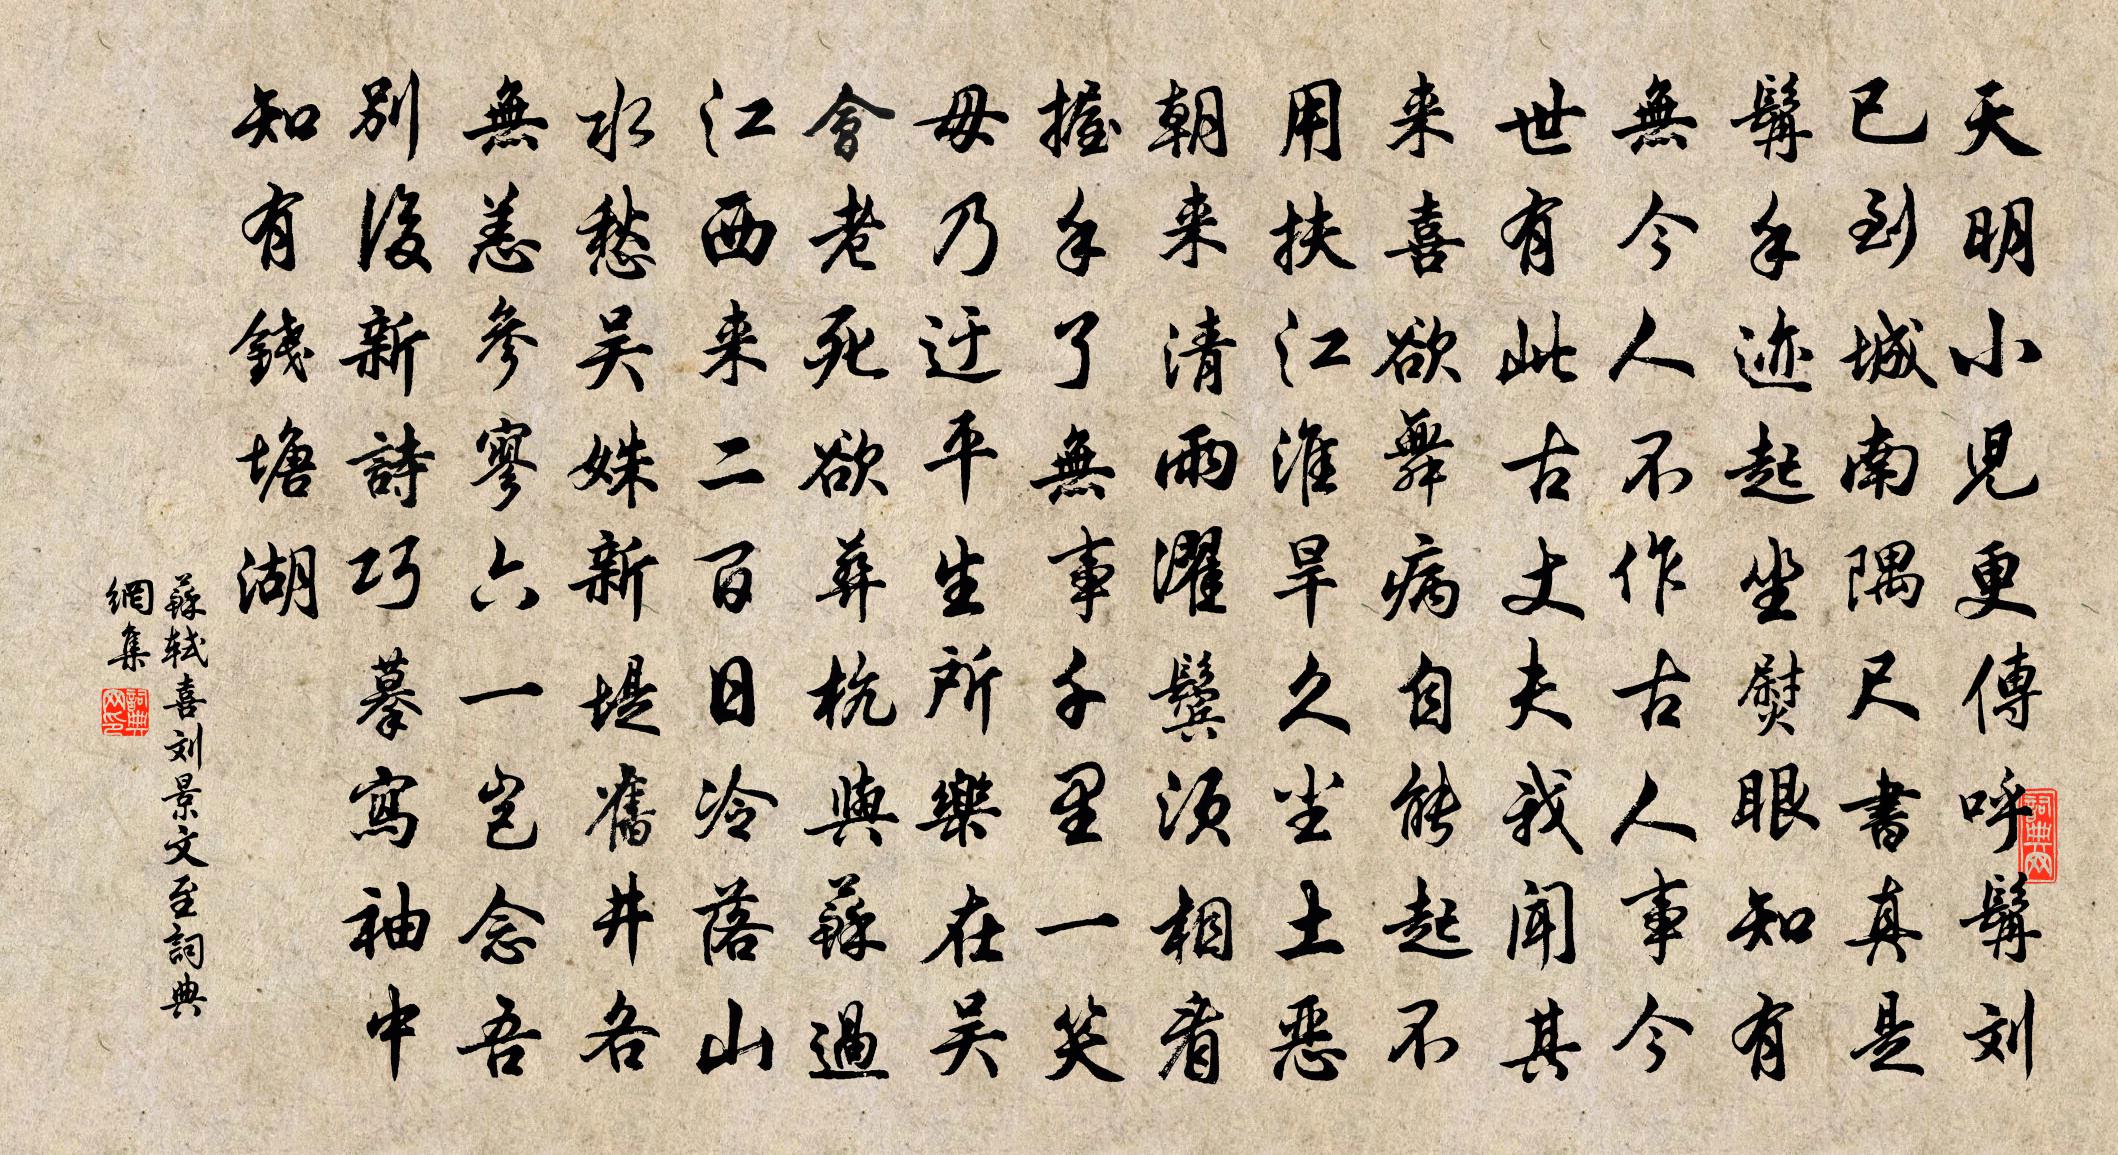 天明小兒更傳呼髯刘
已到城南隅尺書真是
髯手迹起坐熨眼知有
無今人不作古人事今
世有此古丈夫我闻其
来喜欲舞病自能起不
用扶江淮旱久尘土恶
朝来清雨濯鬓须相看
握手了無事千里一笑
毋乃迂平生所樂在吴
會老死欲葬杭與蘇過
江西来二百日冷落山
水愁吴姝新堤舊井各
無恙參寥六一岂念吾
别後新詩巧摹寫袖中
知有錢塘湖
蘇轼喜刘景文至詞典
網集
詞典网
詞典网印